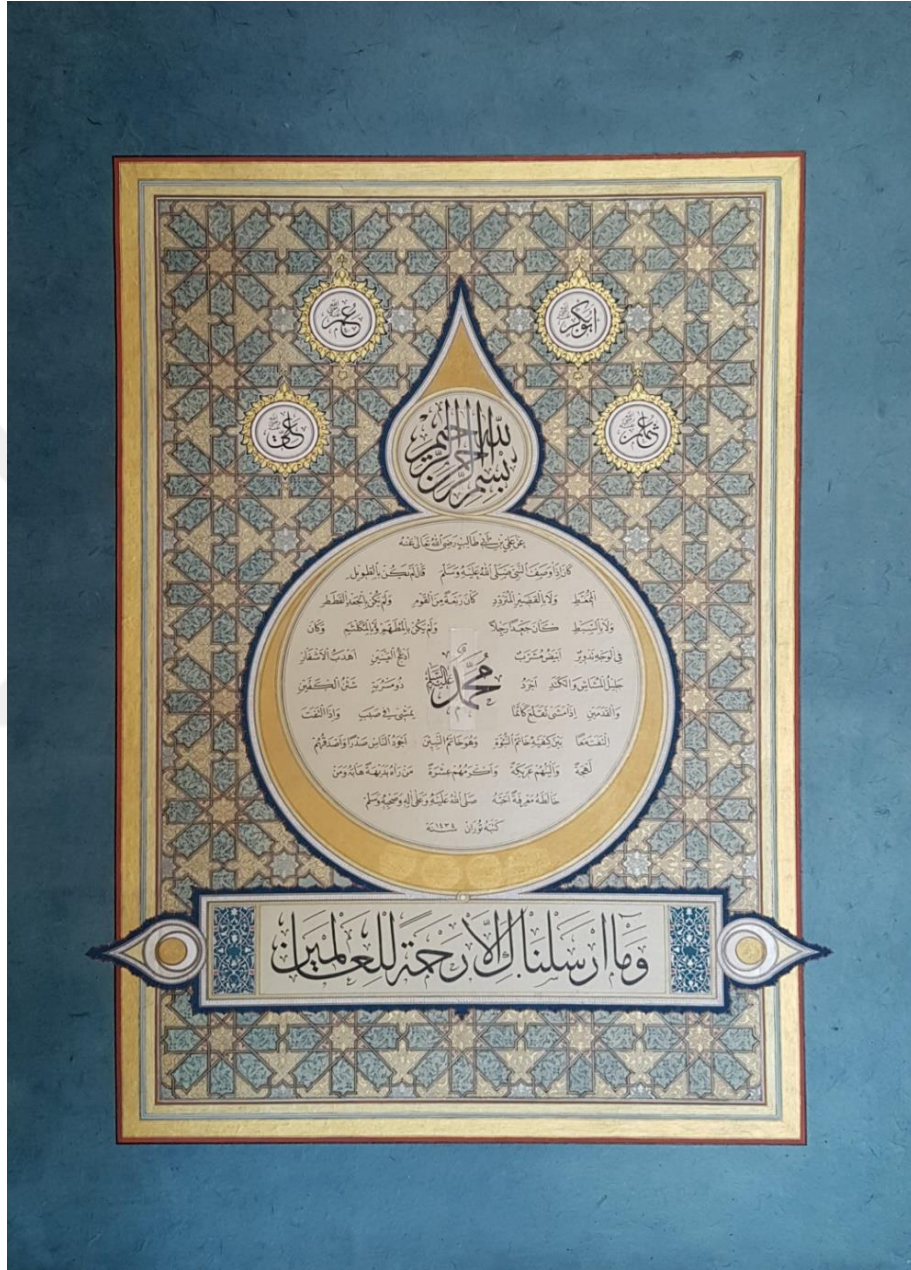 ابوبكر
عمر
عثمان
علی
بسم الله الرحمن الرحيم
عن علي بن ابي طالب رضي الله تعالى عنه
كان اذا وصف النبي صلى الله عليه وسلم قال لم يكن بالطويل
الممغط ولا بالقصير المتردد كان ربعة من القوم ولم يكن بالجعد القطط
ولا بالسبط كان جعدا رجلا ولم يكن بالمطهم ولا بالمكلثم وكان
في الوجه تدوير ابيض مشرب ادعج العينين اهدب الاشفار
جليل المشاش والكتد اجرد ذو مسربة شثن الكفين
محمد عليه السلام
والقدمين اذا مشى تقلع كانما يمشي في صبب واذا التفت
التفت معا بين كتفيه خاتم النبوة وهو خاتم النبيين اجود الناس صدرا واصدقهم
لهجة والينهم عريكة واكرمهم عشرة من رآه بديهة هابه ومن
خالطه معرفة احبه صلى الله عليه وعلى آله وصحبه وسلم
كتبه توران سنة ١٤٣٤
وما ارسلناك الا رحمة للعالمين